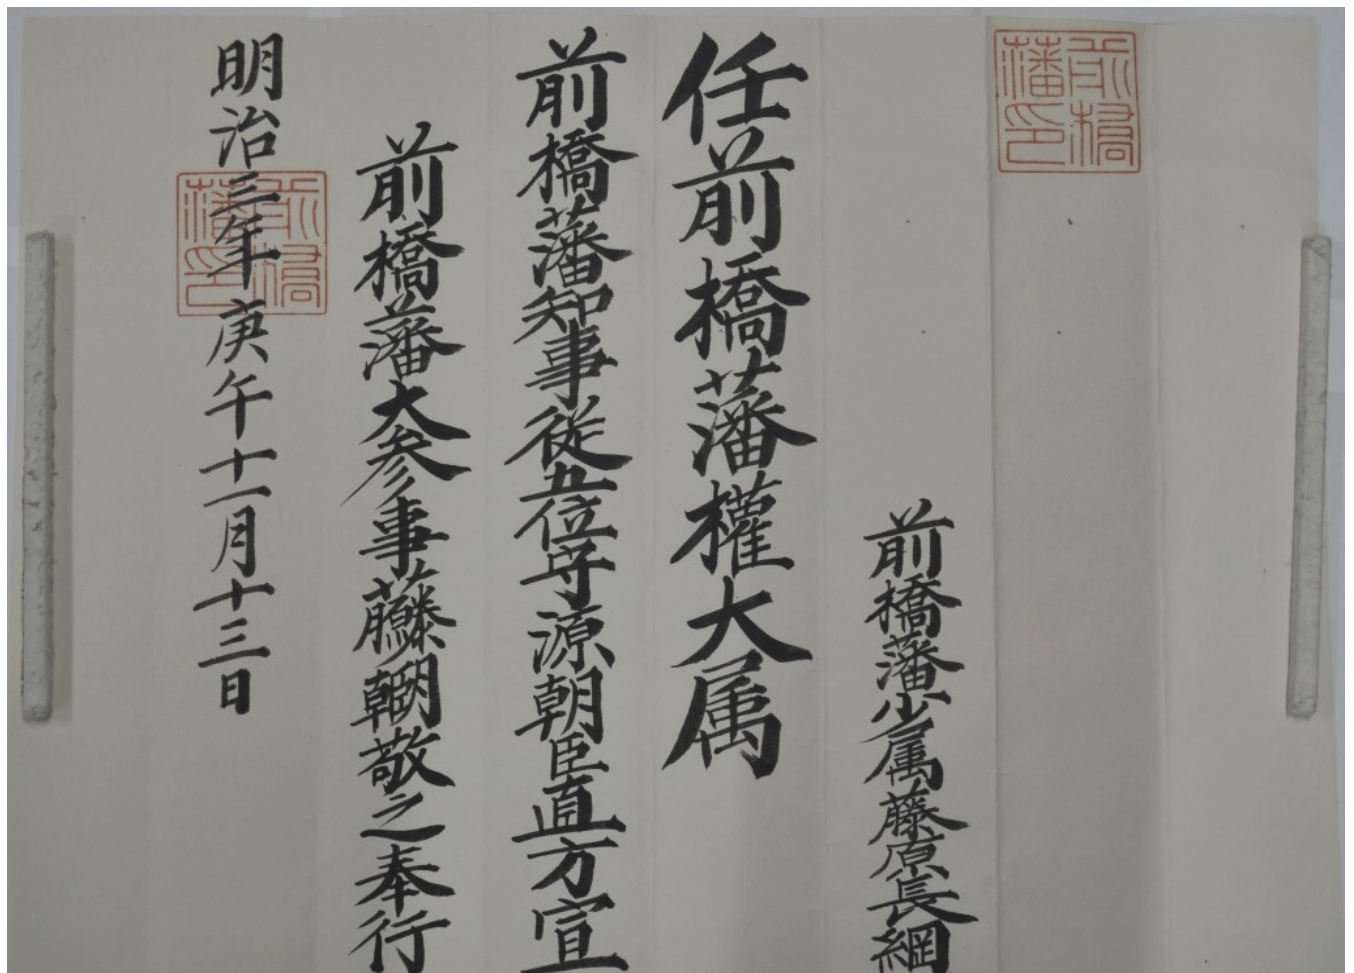 前橋藩印
前橋藩少属藤原長綱
任前橋藩權大属
前橋藩知事從五位守源朝臣直方宣
前橋藩大参事藤朝敬之奉行
明治三年庚午十一月十三日
前橋藩印